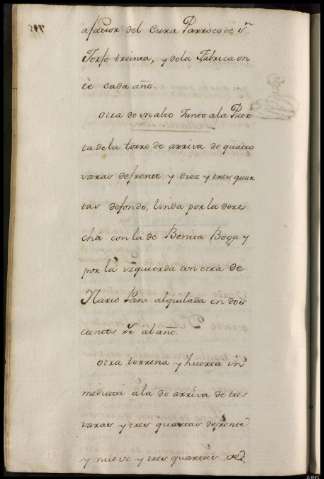 a favor del Cura Parroco de Sn
Jorje treinta, y dela Fabrica on
ce cada año.
Otra de vn alto Junto ala Puer
ta dela torre de arriva de quatro
varas defrente y diez y tres quar
tas defondo, linda por la dere
cha con la de Benita Boga y
por la yzquierda con otra de
alquilada en dos
cientos rs al año.
Otra terrena y huerta in
mediata ála de arriva de tres
varas y tres quartas defrente
y nueve y tres quartas de